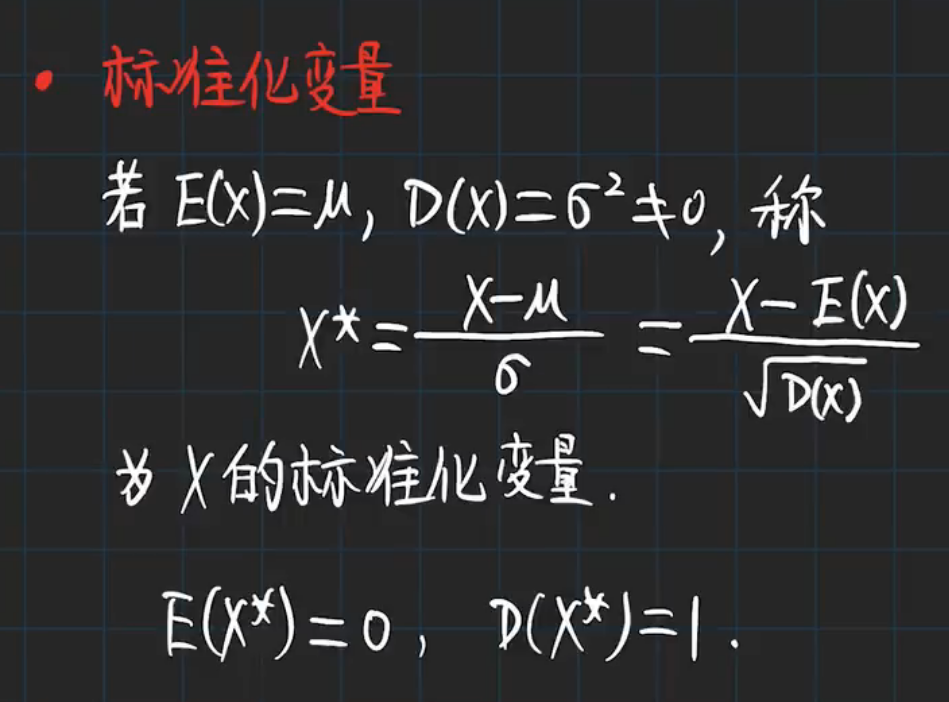 • 标准化变量
若 E(X)=μ, D(X)=σ²≠0, 称
X* = (X-μ)/σ = (X-E(X))/√D(X)
为 X 的标准化变量.
E(X*)=0, D(X*)=1.